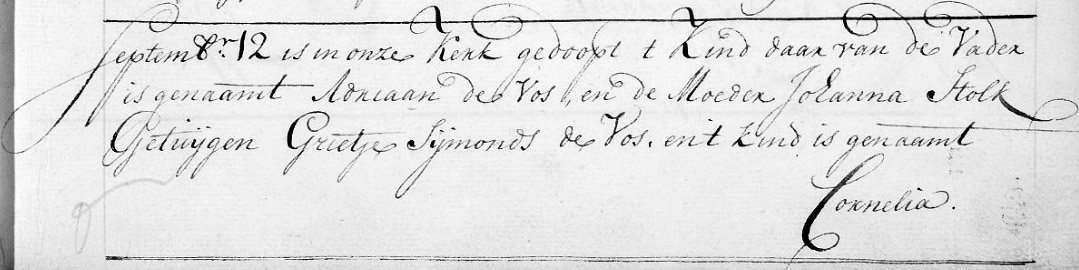 Septemb.r 12 is in onze Kerk gedoopt t Kind daar van de Vader
is genaamt Adriaan de Vos, en de Moeder Johanna Stolk
Getuijgen Grietje Sijmonds de Vos. en t kind is genaamt
Cornelia.